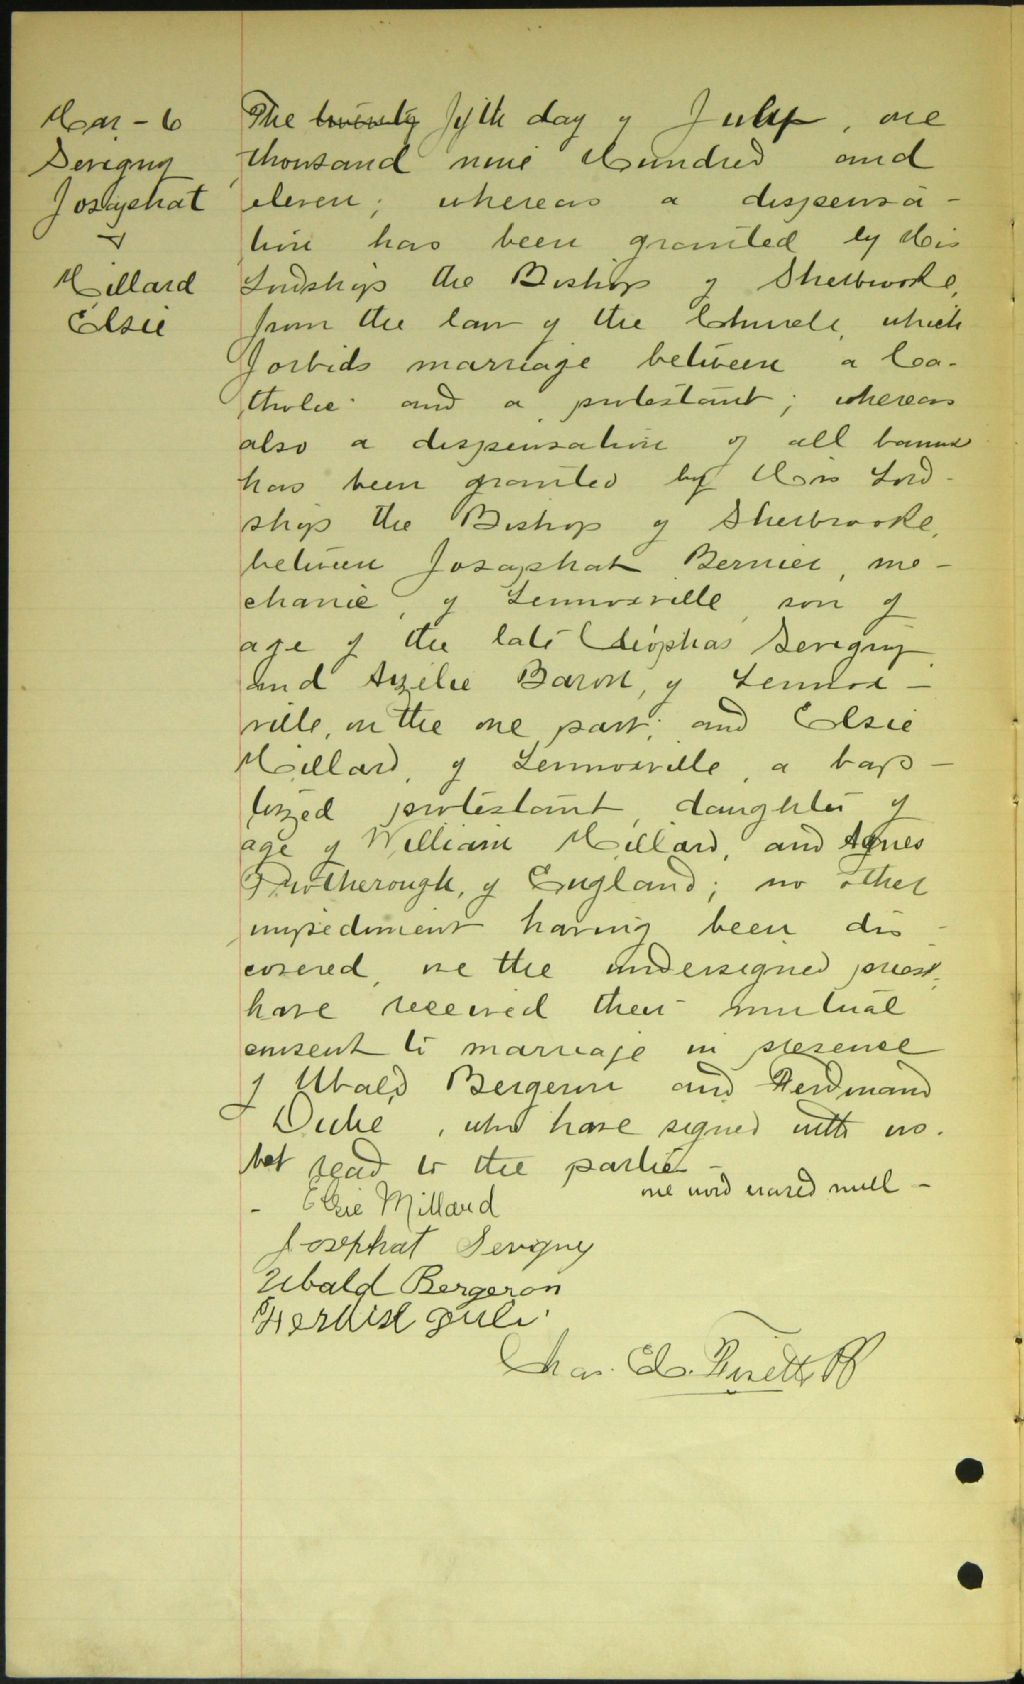 Mar - 6
Sevigny
Josaphat
&
Millard
Elsie
The twenty fifth day of July, one
thousand nine Hundred and
eleven; whereas a dispensa-
tion has been granted by His
Lordship the Bishop of Sherbrooke,
from the law of the Church, which
forbids marriage between a Ca-
tholic and a protestant; whereas
also a dispensation of all banns
has been granted by His Lord-
ship the Bishop of Sherbrooke,
between Josaphat Bernier, me-
chanic, of Lennoxville, son of
age of the late Cléophas Sevigny
and Azélie Baron, of Lennox-
ville, on the one part; and Elsie
Millard, of Lennoxville, a bap-
tized protestant, daughter of
age of William Millard, and Agnes
of England; no other
impediment having been dis-
covered, we the undersigned priest,
have received their mutual
consent to marriage in presence
of Ubald Bergeron and Ferdinand
, who have signed with us.
not read to the parties -
one word erased null -
- Elsie Millard
Josephat Sevigny
Ubald Bergeron
Chas. Ed. Fisette